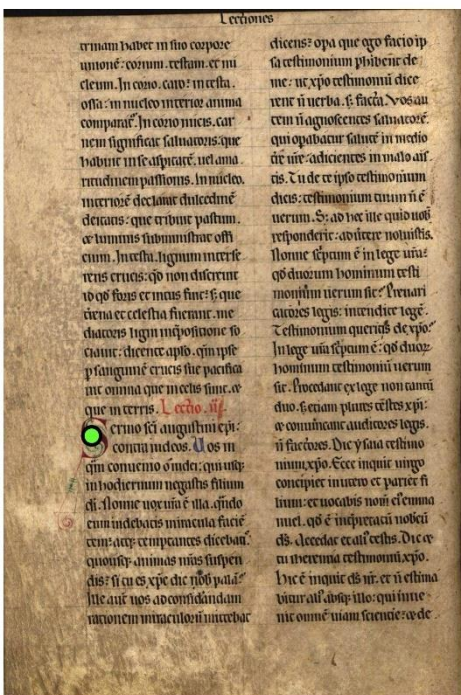 Lectiones
trinam habet in suo corpore
unione᷒: corium. testam. et nu
cleum. In corio. caro: in testa.
ossa: in nucleo interior anima
comparat᷒. In corio nucis. car
nem significat saluatoris: que
habuit in se asp̄itatē. uel ama
ritudinem passionis. In nucleo.
interiorē declarat dulcedinē
deitatis: que tribuit pastum.
⁊ luminis subministrat offi
cium. In testa. lignum interse
rens crucis: qd̄ non discreuit
id qd̄ foris et intus fuit: s; que
t̄rena et celestia fuerant. me
diatoris ligni īpositione so
ciauit: dicente ap̄lo. qm̄ ipse
p sanguinē crucis sue pacifica
uit omnia que in celis sunt. ⁊
que in terris. Lectio. iij.
Sermo sc̄i augustini ep̄i:
contra iudeos. Uos in
q̄m conuenio o iudei: qui usq;
in hodiernum negastis filium
dī. Nonne uox ur̄a ē illa. qn̄do
eum uidebatis miracula faciē
tem: atq; temptantes dicebat᷒.
quousq; animas nr̄as suspen
dis? si tu es xp̄c dic nob̄ palā?
Ille aut̄ uos ad considandam
rationem miraculorū mittebat
dicens: op̄a que ego facio ip
sa testimonium phibent de
me: ut xp̄o testimoniū dice
rent n̄ uerba. s; facta. Vos au
tem n̄ agnoscentes saluatorē.
qui opabatur salutē in medio
tr̄e ur̄e: adicientes in malo ais
tis. Tu de te ipso testimonium
dicis: testimonium tuum n̄ ē
uerum. S; ad hec ille quid uob̄
responderit: aduertere noluistis.
Nonne sc̄ptum ē in lege ur̄a:
qd̄ duorum hominum testi
monium uerum sit? Preuari
catores legis: intendite legē.
Testimonium queritis de xp̄o?
In lege ur̄a sc̄ptum ē: qd̄ duor
hominum testimoniū uerum
sit. Procedant ex lege non tantū
duo. s; etiam plures testes xp̄i:
⁊ conuincant auditores legis.
n̄ factores. Dic ysaia testimo
nium xp̄o. Ecce inquit uirgo
concipiet in utero et pariet fi
lium: et uocabit᷒ nom̄ ei᷒ emma
nuel. qd̄ ē interpretatū nobiscū
ds̄. Accedat et ali᷒ testis. Dic ⁊
tu iheremia testimoniū xp̄o.
Hic ē inquit ds̄ nr̄. et n̄ estima
bitur ali᷒ absq; illo: qui inue
nit omnē uiam scientie: ⁊ de